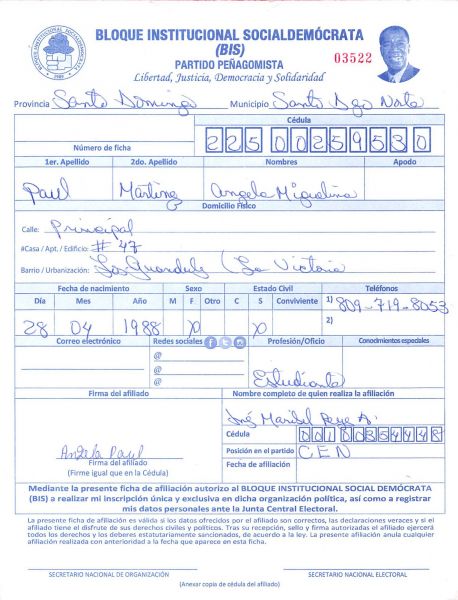 BLOQUE INSTITUCIONAL SOCIALDEMÓCRATA
(BIS)
PARTIDO PEÑAGOMISTA
03522
Libertad, Justicia, Democracia y Solidaridad
Provincia Santo Domingo Municipio Santo Dgo Norte
Cédula
Número de ficha 22500259530
1er. Apellido 2do. Apellido Nombres Apodo
Paul Martinez Angela Miguelina
Domicilio Físico
Calle: Principal
#Casa / Apt. / Edificio: # 47
Barrio / Urbanización: Los Guandules (La Victoria
Fecha de nacimiento Sexo Estado Civil Teléfonos
Día Mes Año M F Otro C S Conviviente 1) 809-719-8053
28 04 1988 X X 2)
Correo electrónico Redes sociales Profesión/Oficio Conocimientos especiales
@
@
@ Estudiante
Firma del afiliado Nombre completo de quien realiza la afiliación
Maribel Reyes A.
Cédula 00100354448
Angela Paul Posición en el partido CEN
Firma del afiliado Fecha de afiliación
(Firme igual que en la Cédula)
Mediante la presente ficha de afiliación autorizo al BLOQUE INSTITUCIONAL SOCIAL DEMÓCRATA
(BIS) a realizar mi inscripción única y exclusiva en dicha organización política, así como a registrar
mis datos personales ante la Junta Central Electoral.
La presente ficha de afiliación es válida si los datos ofrecidos por el afiliado son correctos, las declaraciones veraces y si el
afiliado tiene el disfrute de sus derechos civiles y políticos. Tras su recepción, sello y firma autorizadas el afiliado ejercerá
todos los derechos y los deberes estatutariamente sancionados, de acuerdo a la ley. La presente afiliación anula cualquier
afiliación realizada con anterioridad a la fecha que aparece en esta ficha.
SECRETARIO NACIONAL DE ORGANIZACIÓN SECRETARIO NACIONAL ELECTORAL
(Anexar copia de cédula del afiliado)